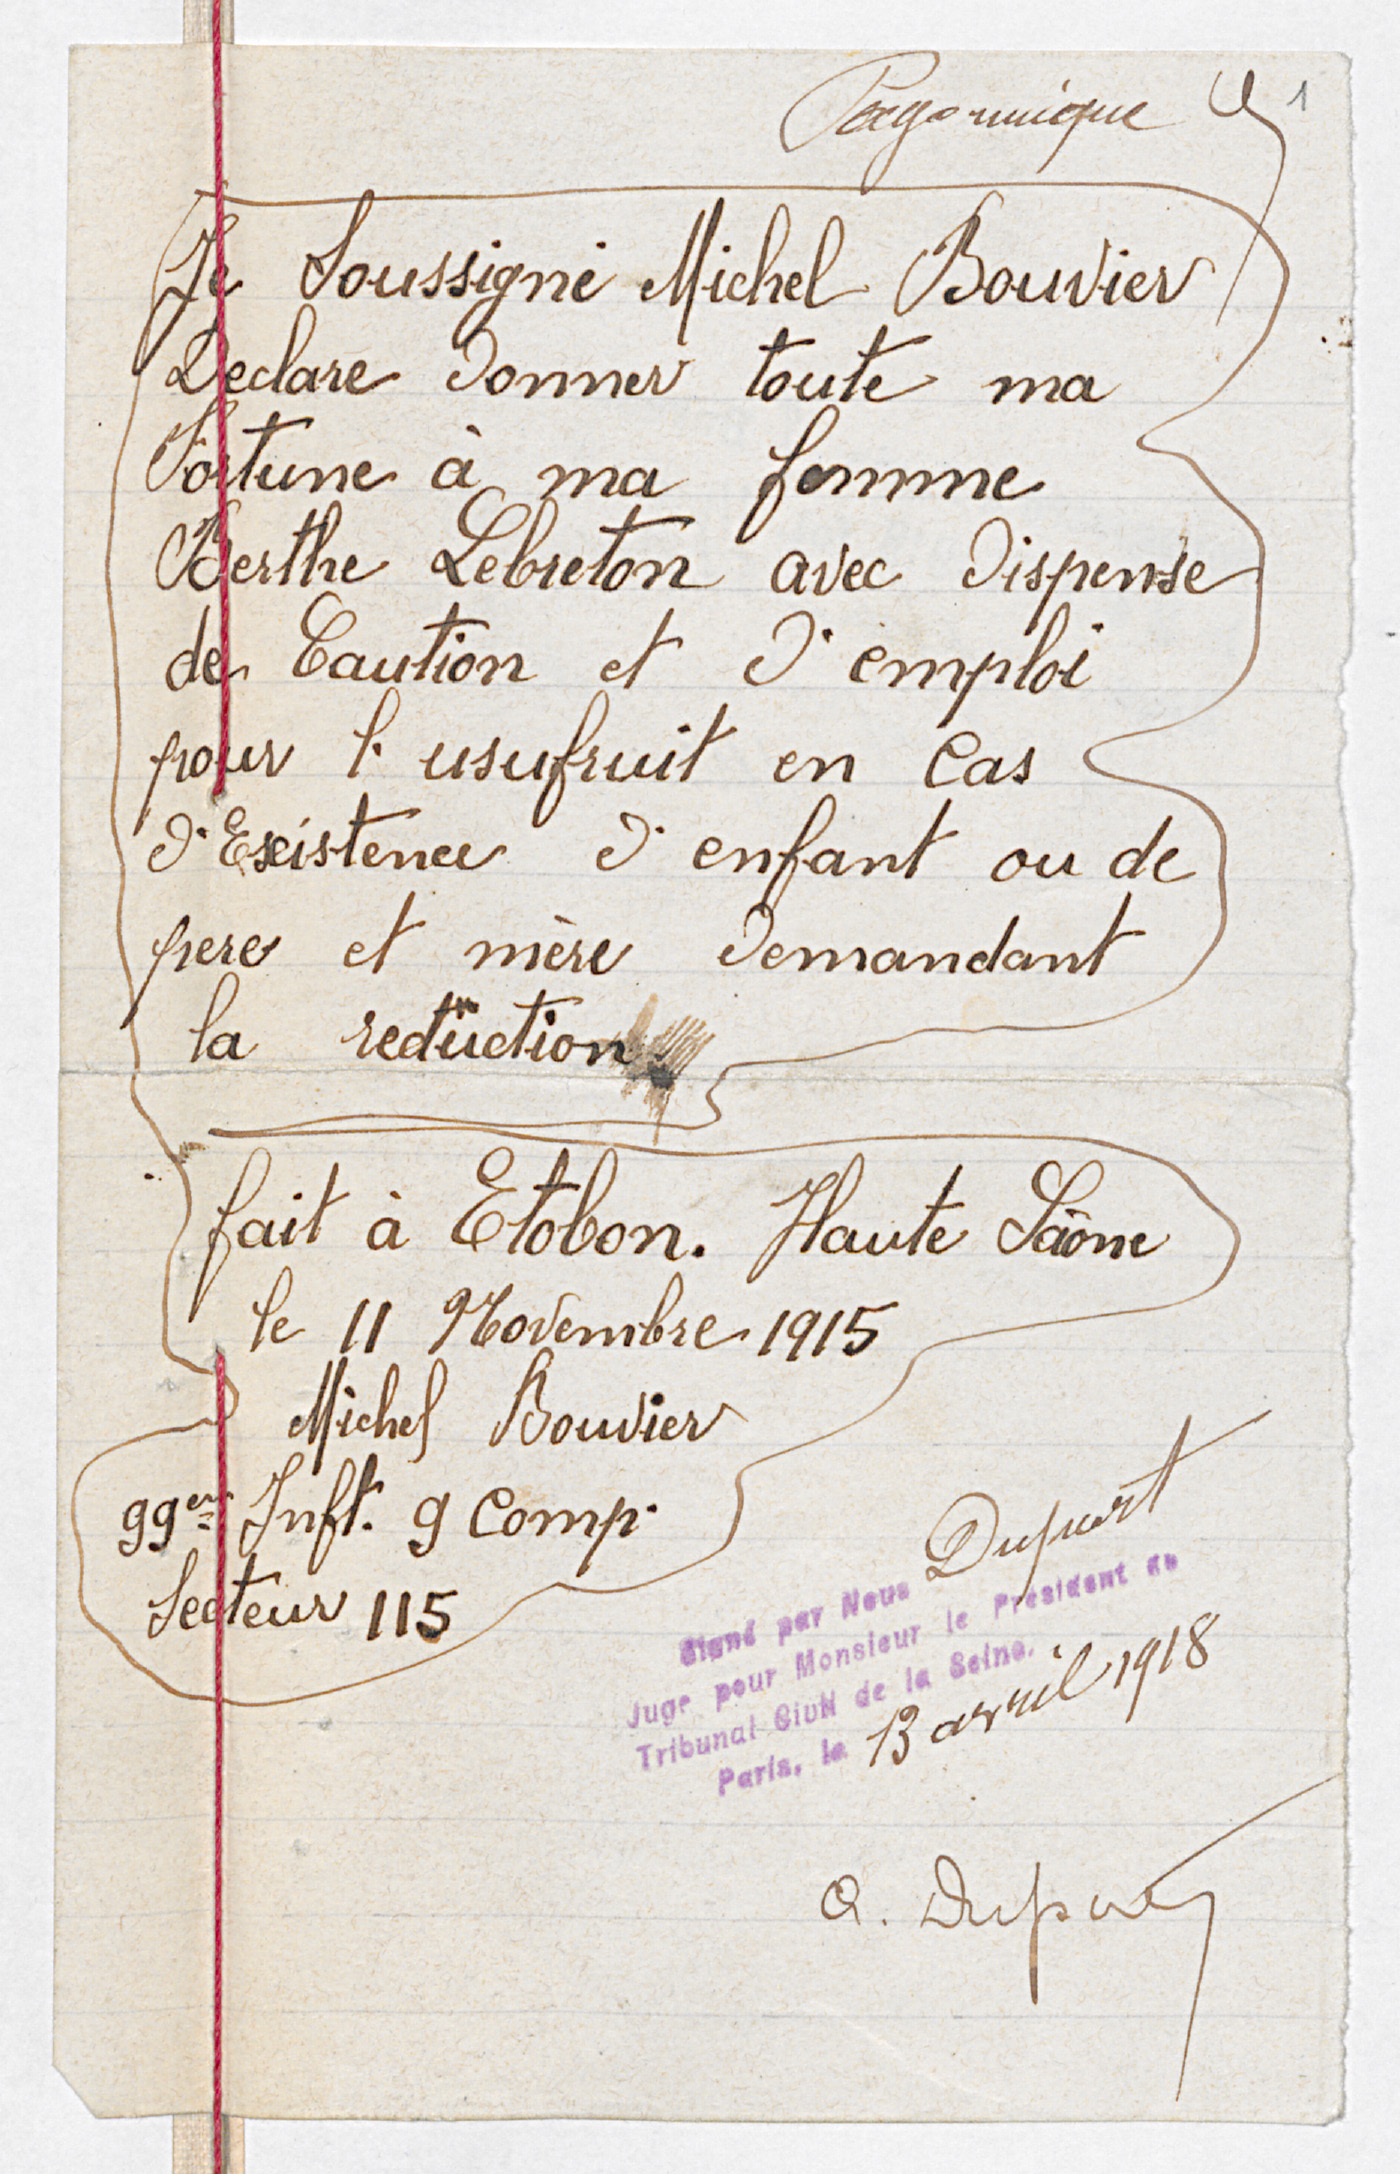 Page unique
1
Je Soussigné Michel Bouvier
Declare donner toute ma
Fortune à ma femme
Berthe Lebreton avec dispense
de Caution et d'emploi
pour l'usufruit en Cas
d'Existence d'enfant ou de
pere et mère demandant
la reduction.
fait à Etobon. Haute Saône
le 11 Novembre 1915
Michel Bouvier
99em Inft. 9 Comp.
Secteur 115
Signé par Nous Dupart
Juge pour Monsieur le Président du
Tribunal Civil de la Seine.
Paris, le 13 avril 1918